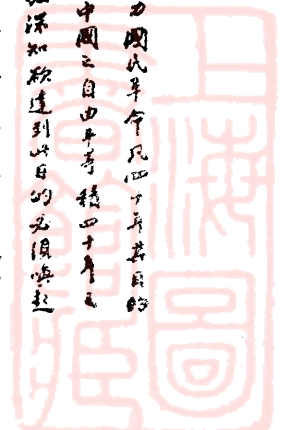 力國民革命凡四十年其目的
中國之自由平等積四十年之
深知欲達到此目的必須喚起
上海圖
書館藏